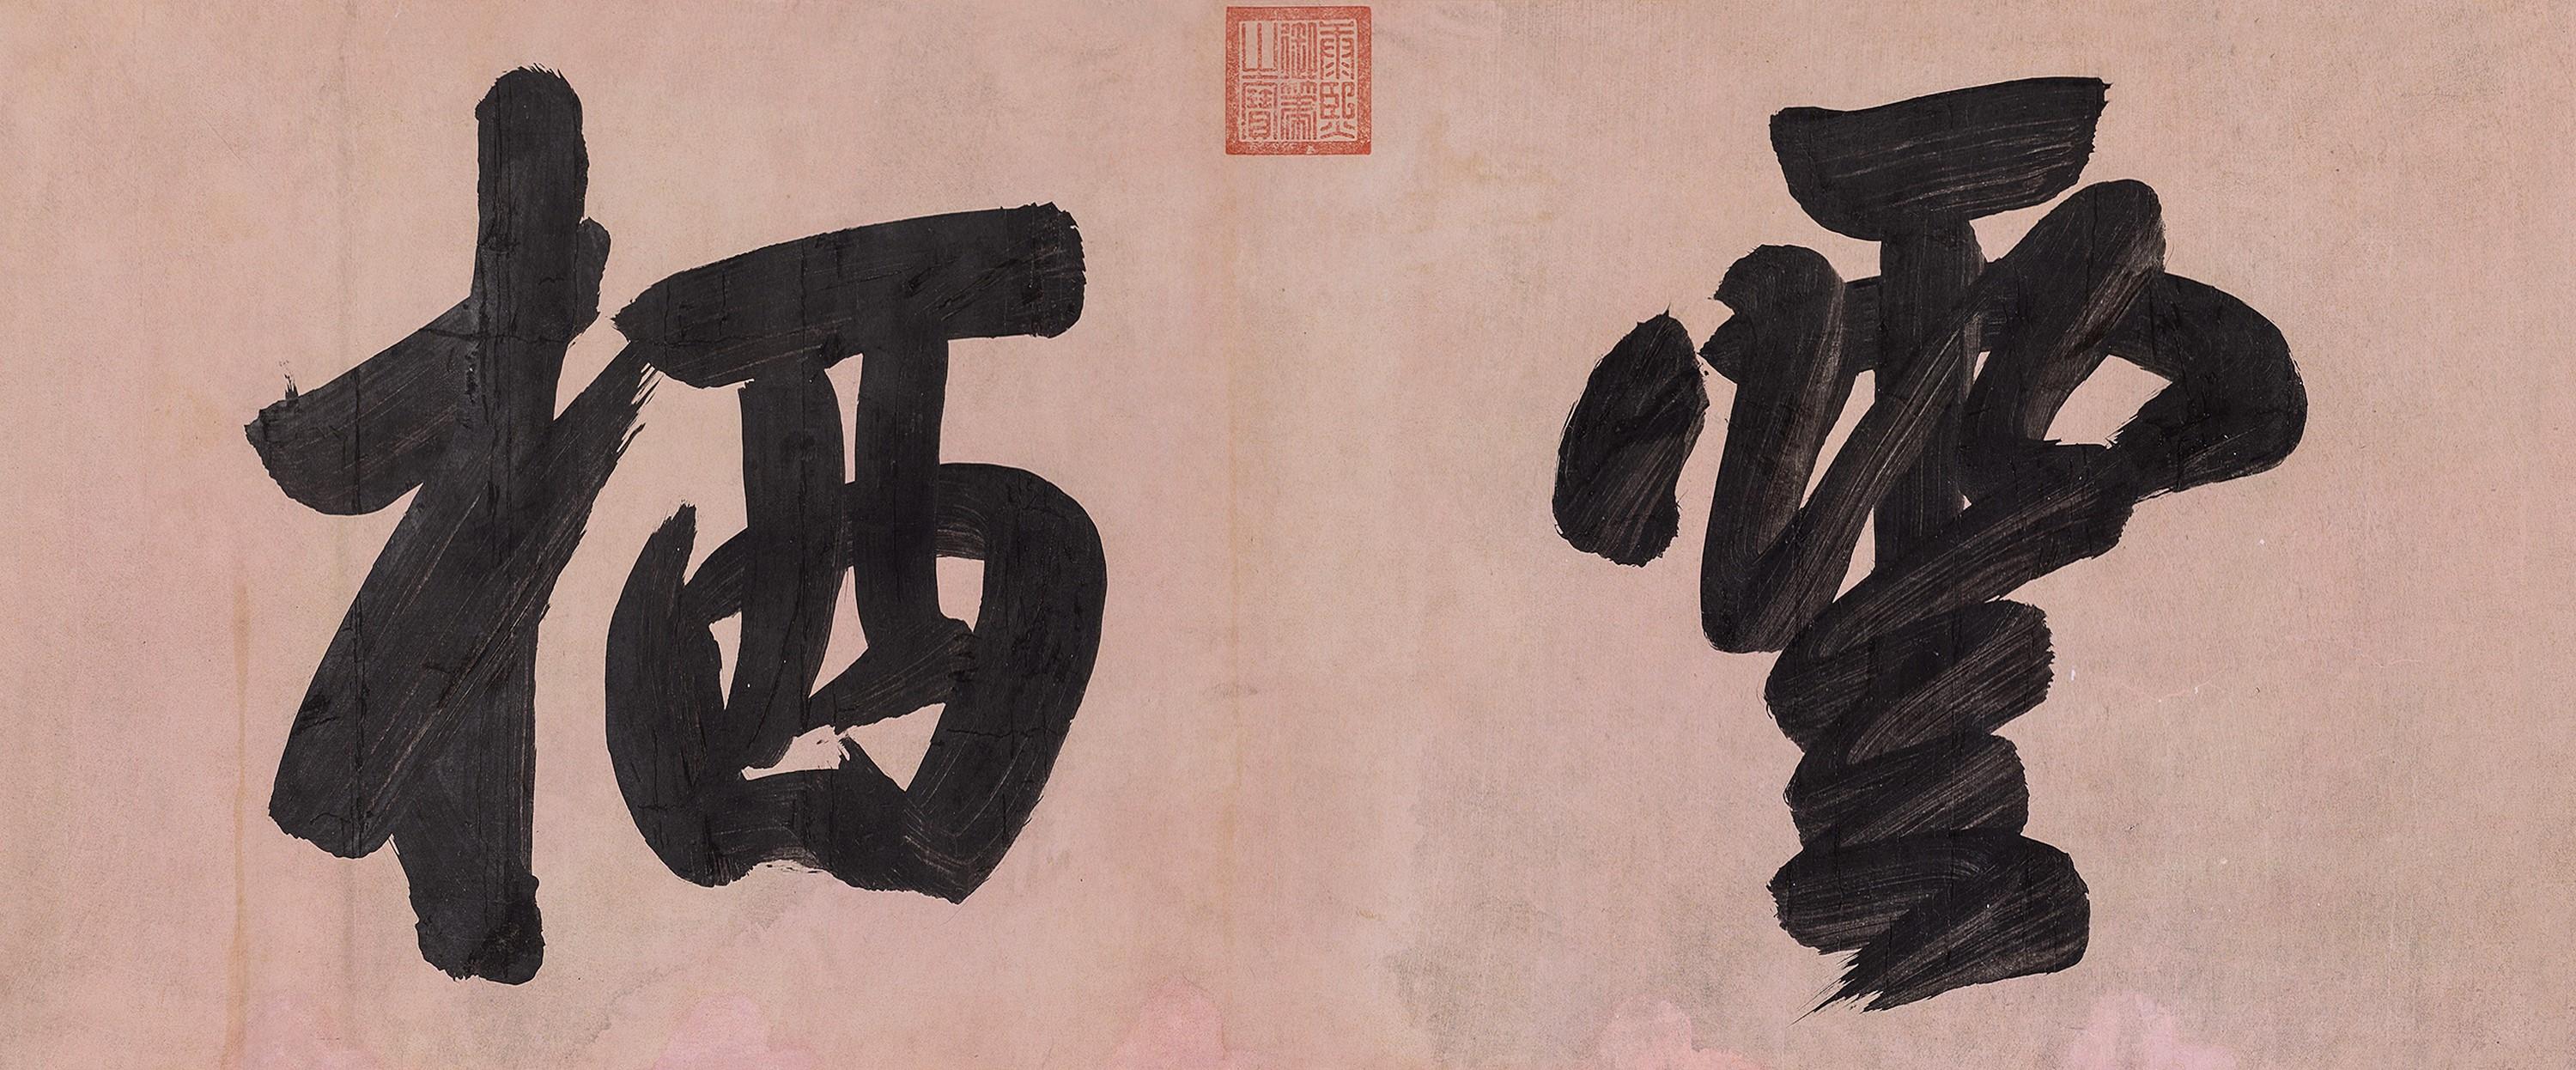 雲栖
康熙
御筆
之寶